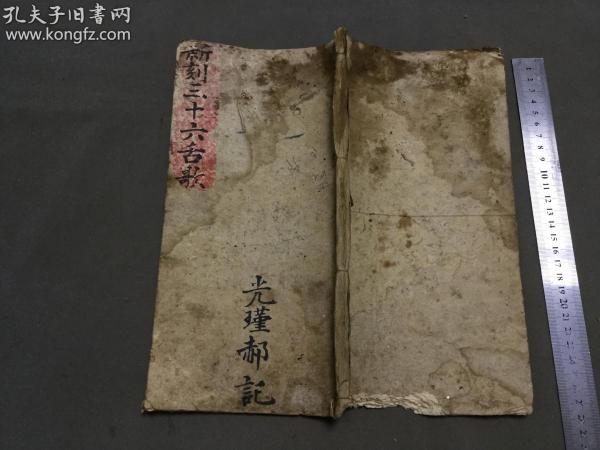 孔夫子旧书网
www.kongfz.com
新刻三十六舌歌
光瑾郝記
1 2 3 4 5 6 7 8 9 10 11 12 13 14 15 16 17 18 19 20 21